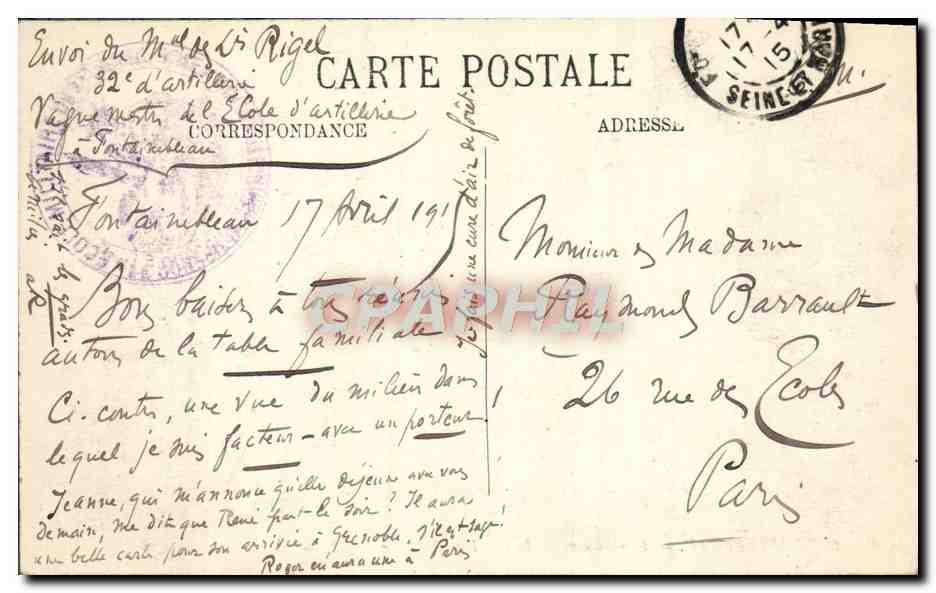 Envoi du Mal des Lis Rigel
32e d'artillerie
Vaguemestre de l'Ecole d'artillerie
à Fontainebleau
CARTE POSTALE
CORRESPONDANCE
ADRESSE
17 -4
15
SEINE-ET-MAR
Fontainebleau 17 Avril 191
Bons baisers à tous réunis
autour de la table familiale
Ci-contre, une vue du milieu dans
lequel je suis facteur - avec un porteur !
Jeanne, qui m'annonce qu'elle déjeune avec vous
Demain, me dit que René part le soir ? Il aura
une belle carte pour son arrivée à Grenoble, s'il est sage !
Roger en aura une à Paris
Je fais une cure d'air de forêt
Monsieur et Madame
Raymond Barrault
26 rue des Ecoles
Paris
CPAPHIL